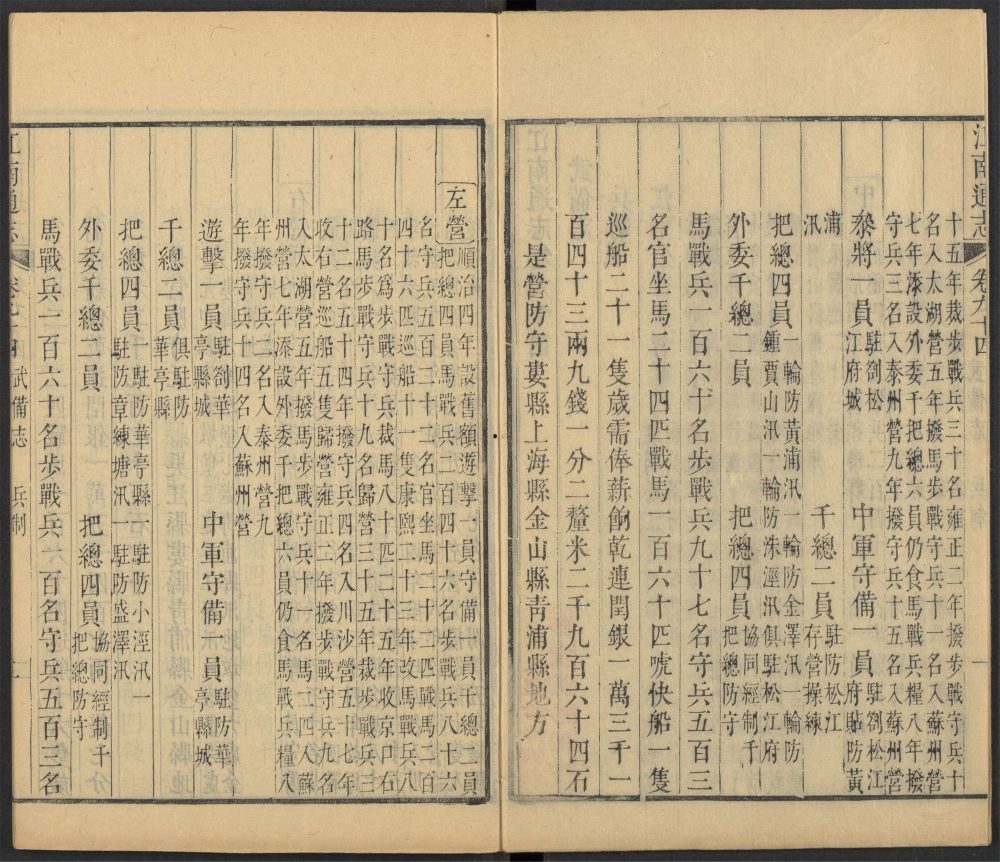 江南通志 卷九十四 一
十五年裁步戰兵三十名雍正二年撥步戰守兵十
名入太湖營五年撥馬步戰守兵十一名入蘇州營
七年添設外委千把總六員仍食馬戰兵糧八年撥
守兵三名入泰州營九年撥守兵十五名入蘇州營
叅將一員 駐劄松江府城 中軍守備一員 駐劄松江府貼防黃
浦汛 千總二員 駐防松江存營操練
把總四員 一輪防黃浦汛一輪防金澤汛一輪防鍾賈山汛一輪防洙涇汛俱駐松江府
外委千總二員 把總四員 協同經制千把總防守
馬戰兵一百六十名步戰兵九十七名守兵五百三
名官坐馬三十四匹戰馬一百六十匹唬快船一隻
巡船二十一隻歲需俸薪餉乾連閏銀一萬三千一
百四十三兩九錢一分二釐米二千九百六十四石
是營防守婁縣上海縣金山縣青浦縣地方
左營 順治四年設舊額遊擊一員守備一員千總二員
把總四員馬戰兵二百四十六名步戰兵八十六
名守兵五百二十三名官坐馬二十二匹戰馬二百
四十六匹巡船十一隻康熙二十三年改馬戰兵八
十名為步戰守兵裁馬八十匹二十五年收京口右
路馬步戰守兵十九名歸營三十五年裁步戰兵三
十二名五十四年撥守兵四名入川沙營五十七年
收右營巡船五隻歸營雍正二年撥步戰守兵九名
入太湖營五年撥馬步戰守兵十一名馬二匹入蘇
州營七年添設外委千把總六員仍食馬戰兵糧八
年撥守兵二名入泰州營九
年撥守兵十四名入蘇州營
遊擊一員 駐劄華亭縣城 中軍守備一員 駐防華亭縣城
千總二員 俱駐防華亭縣
把總四員 一駐防華亭縣一駐防小涇汛一駐防章練塘汛一駐防盛澤汛
外委千總二員 把總四員 協同經制千把總防守
馬戰兵一百六十名步戰兵一百名守兵五百三名
江南通志 卷九十四 武備志 兵制 一